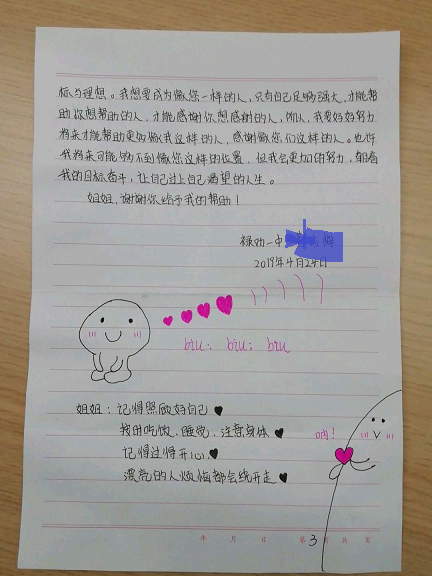 标与理想。我想要成为像您一样的人，只有自己足够强大，才能帮
助你想帮助的人，才能感谢你想感谢的人，所以，我要好好努力
将来才能帮助更多像我这样的人，感谢像您们这样的人。也许
我将来可能够不到像您这样的位置，但我会更加的努力，朝着
我的目标奋斗，让自己过上自己渴望的人生。
姐姐，谢谢你给予我的帮助！
禄劝一中
2019年4月24日
biu、biu；biu
姐姐：记得照顾好自己
按时吃饭、睡觉、注意身体
呐！
记得过得开心
漂亮的人烦恼都会绕开走
年 月 日 第 3 页 共 页